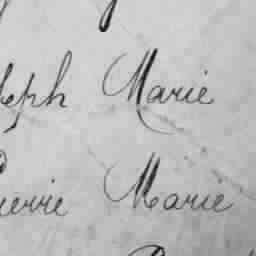 seph Marie
ierre Marie